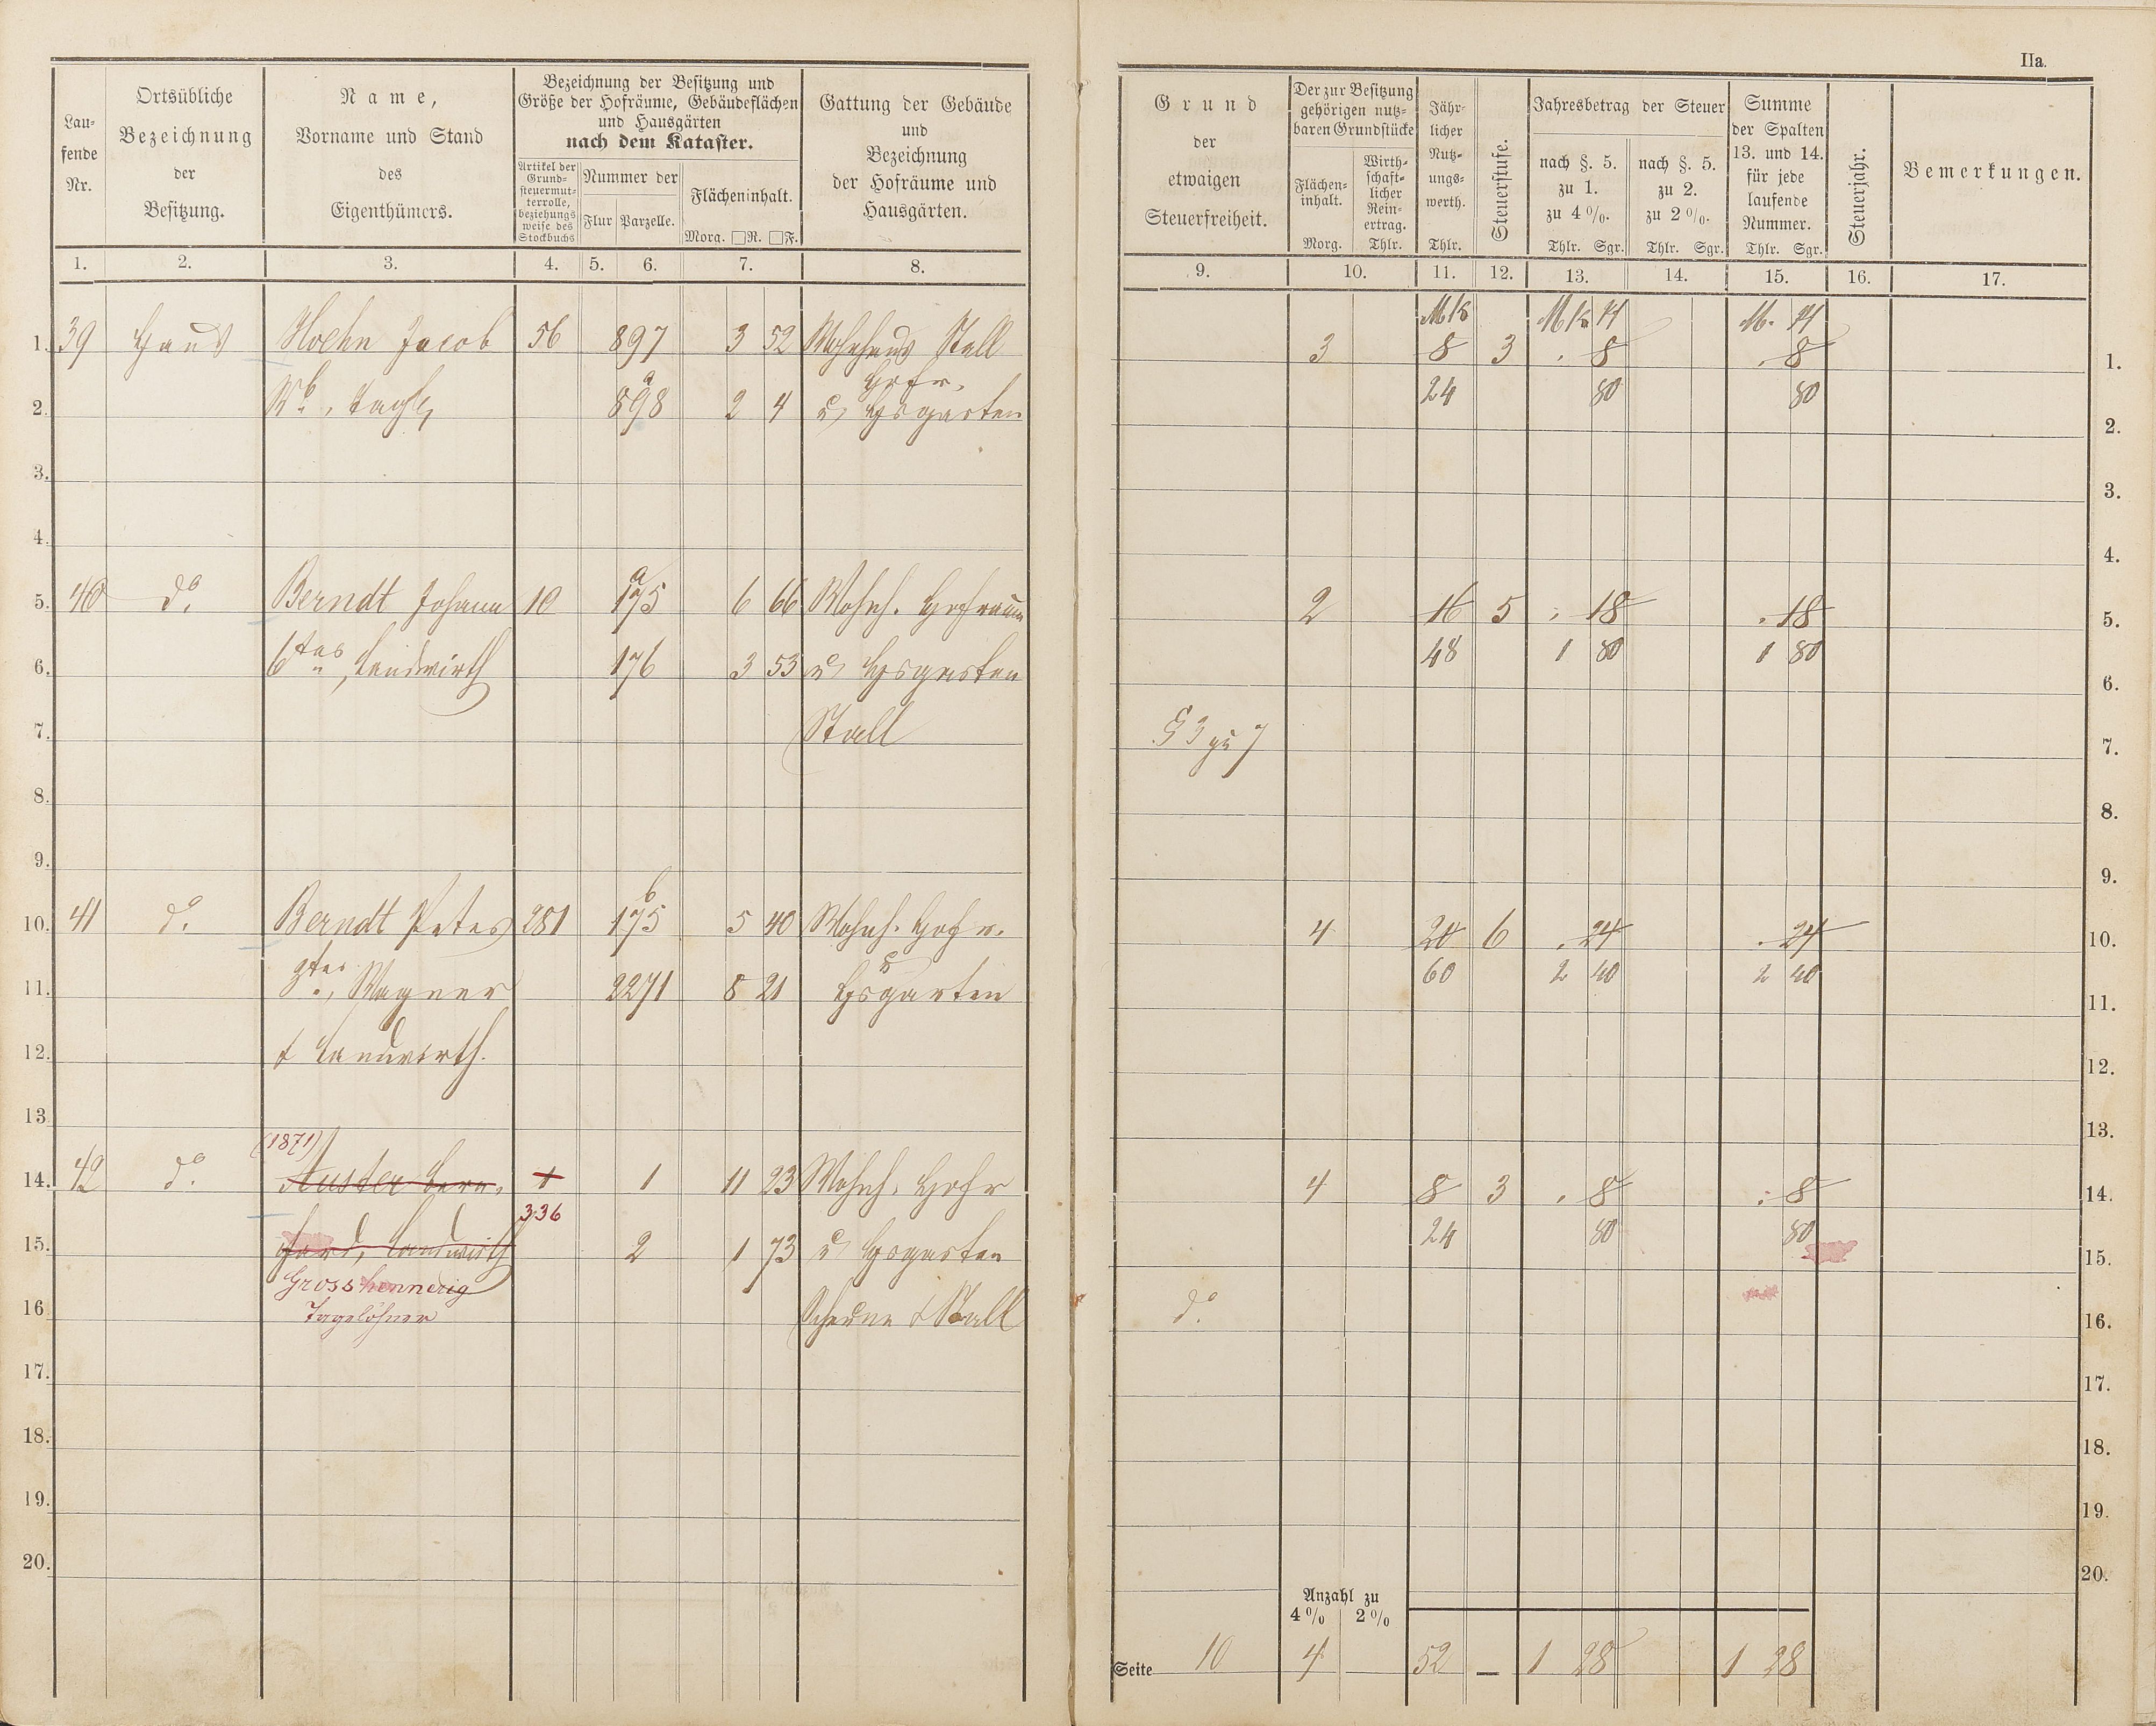 IIa.
Lau-
fende
Nr.
Ortsübliche
Bezeichnung
der
Besitzung.
Name,
Vorname und Stand
des
Eigenthümers.
Bezeichnung der Besitzung und
Größe der Hofräume, Gebäudeflächen
und Hausgärten
nach dem Kataster.
Artikel der
Grund-
steuermut-
terrolle,
beziehungs
weise des
Stockbuchs
Nummer der
Flur Parzelle.
Flächeninhalt.
Morg. □R. □F.
Gattung der Gebäude
und
Bezeichnung
der Hofräume und
Hausgärten.
Grund
der
etwaigen
Steuerfreiheit.
Der zur Besitzung
gehörigen nutz-
baren Grundstücke
Flächen-
inhalt.
Morg.
Wirth-
schaft-
licher
Rein-
ertrag.
Thlr.
Jähr-
licher
Nutz-
ungs-
werth.
Thlr.
Steuerstufe.
Jahresbetrag der Steuer
nach §. 5.
zu 1.
zu 4%.
Thlr. Sgr.
nach §. 5.
zu 2.
zu 2%.
Thlr. Sgr.
Summe
der Spalten
13. und 14.
für jede
laufende
Nummer.
Thlr. Sgr.
Steuerjahr.
Bemerkungen.
1. 2. 3. 4. 5. 6. 7. 8. 9. 10. 11. 12. 13. 14. 15. 16. 17.
Mk Mk Pf M. Pf
1. 39 Haus Hoehn Jacob 56 897 3 52 Wohnhaus Stall 3 8 3 . 8 . 8 1.
Hofr.
2. Wb., Tagl. 898 a 2 4 u Hsgarten 24 80 80 2.
3. 3.
4. 4.
5. 40 do. Berndt Johann 10 175 a 6 66 Wohnh. Hofraum 2 16 5 . 18 . 18 5.
6. 6tes, Landwirth 176 3 53 u Hsgarten 48 1 80 1 80 6.
7. Stall § 3 zu 7 7.
8. 8.
9. 9.
10. 41 do. Berndt Peter 281 175 b 5 40 Wohnh. Hofr. 4 20 6 . 24 . 24 10.
u
11. Wagner 2271 8 21 Hsgarten 60 2 40 2 40 11.
12. & Landwirth. 12.
13. 13.
(1871)
14. 42 do. Auster Bern- 1 1 11 23 Wohnh. Hofr 4 8 3 . 8 . 8 14.
336
15. hard, Landwirth 2 1 73 u Hsgarten 24 80 80 15.
Grosshennerig
16. Tagelöhner Scheune & Stall do. 16.
17. 17.
18. 18.
19. 19.
20. 20.
Anzahl zu
4% 2%
Seite 10 4 52 — 1 28 1 28